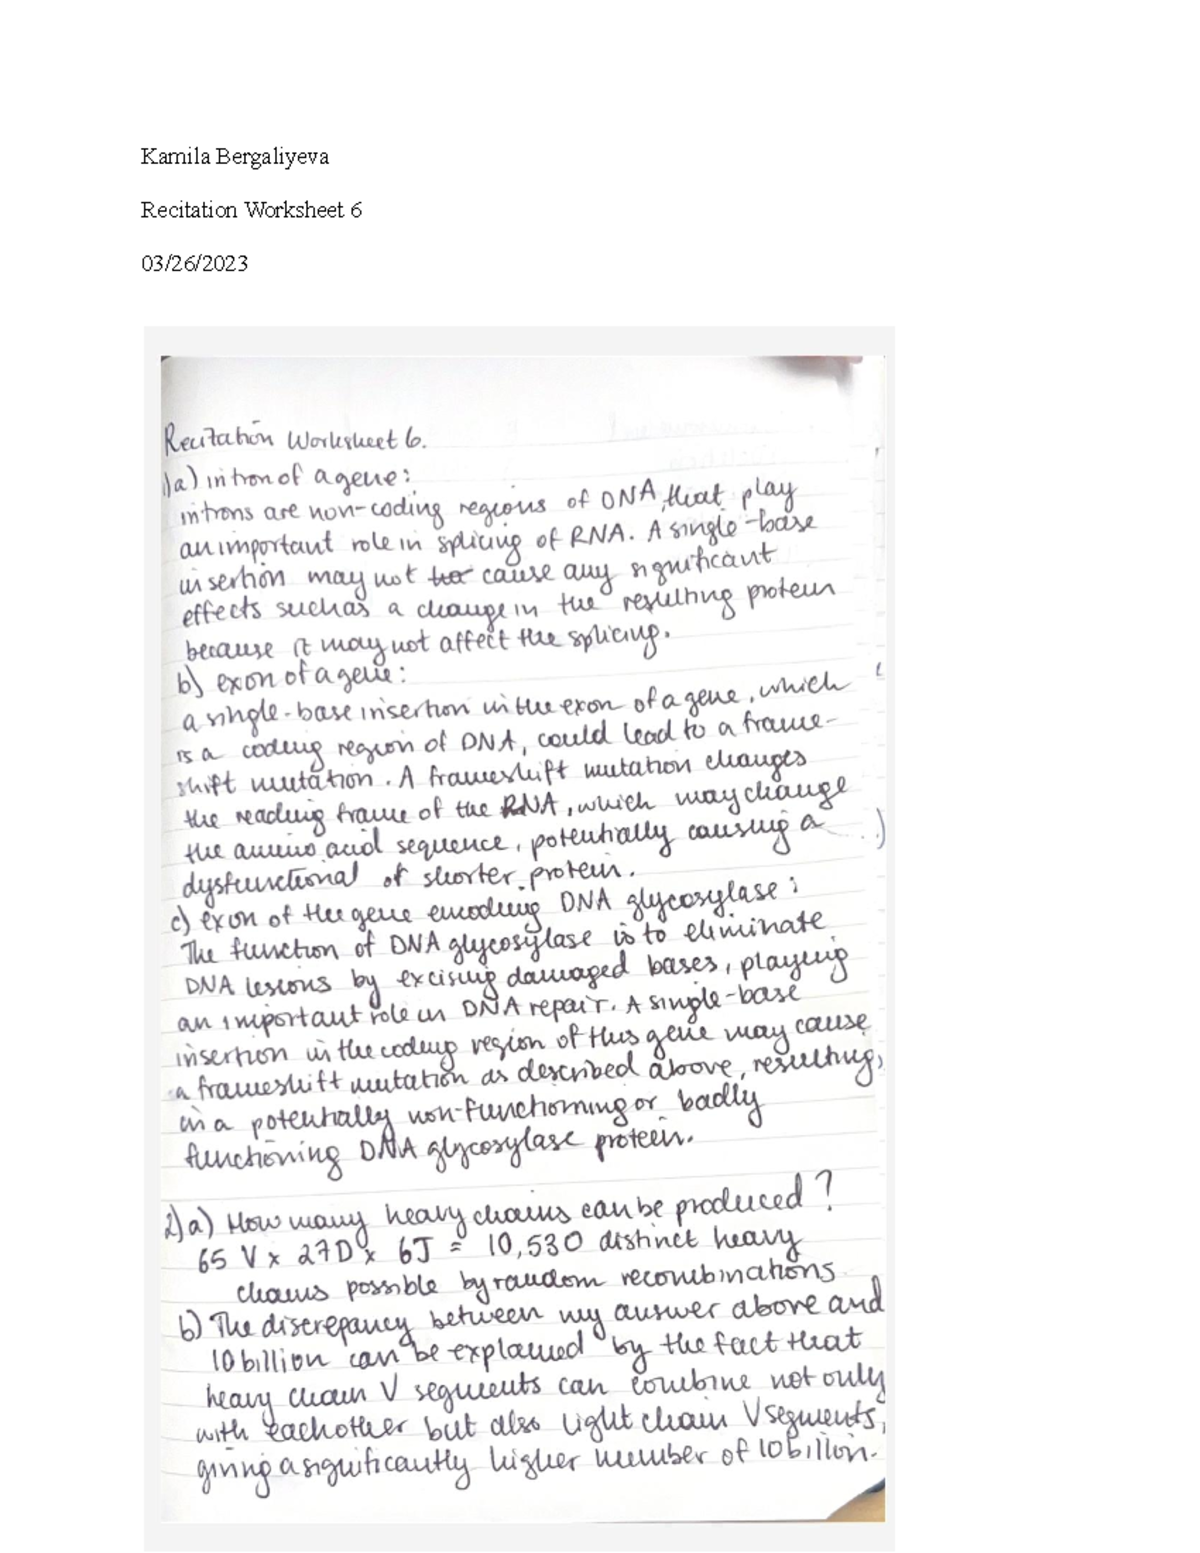 Kamila Bergaliyeva
Recitation Worksheet 6
03/26/2023
Recitation Worksheet 6.
1)a) intron of a gene:
introns are non-coding regions of DNA, that play
an important role in splicing of RNA. A single-base
insertion may not cause any significant
effects such as a change in the resulting protein
because it may not affect the splicing.
b) exon of a gene:
a single-base insertion in the exon of a gene, which
is a coding region of DNA, could lead to a frame-
shift mutation. A frameshift mutation changes
the reading frame of the RNA, which may change
the amino acid sequence, potentially causing a
dysfunctional or shorter protein.
c) exon of the gene encoding DNA glycosylase:
The function of DNA glycosylase is to eliminate
DNA lesions by excising damaged bases, playing
an important role in DNA repair. A single-base
insertion in the coding region of this gene may cause
a frameshift mutation as described above, resulting,
in a potentially non-functioning or badly
functioning DNA glycosylase protein.
2)a) How many heavy chains can be produced?
65 V x 27D x 6J = 10,530 distinct heavy
chains possible by random recombinations
b) The discrepancy between my answer above and
10 billion can be explained by the fact that
heavy chain V segments can combine not only
with eachother but also light chain V segments,
giving a significantly higher number of 10 billion.